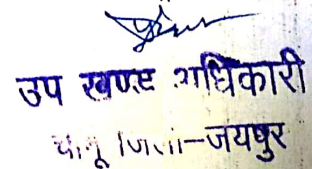 उप खण्ड अधिकारी
जिला-जयपुर